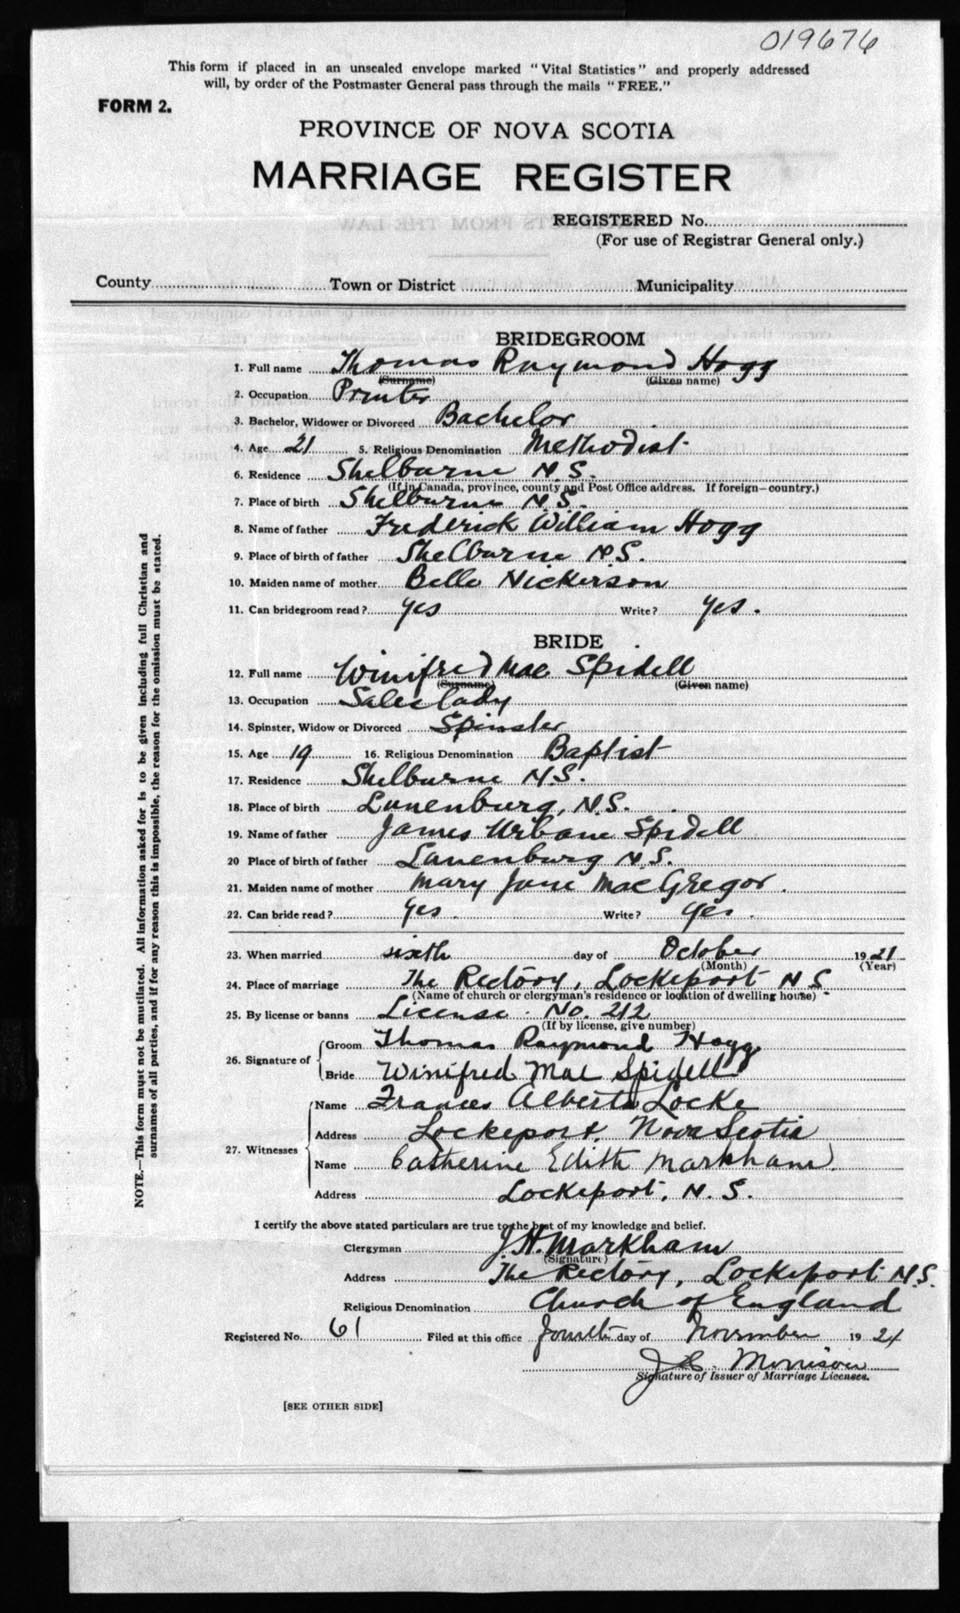 019676
This form if placed in an unsealed envelope marked "Vital Statistics" and properly addressed
will, by order of the Postmaster General pass through the mails "FREE."
FORM 2.
PROVINCE OF NOVA SCOTIA
MARRIAGE REGISTER
REGISTERED No.
(For use of Registrar General only.)
County Town or District Municipality
BRIDEGROOM
1. Full name Thomas Raymond Hogg
(Surname) (Given name)
2. Occupation Printer
3. Bachelor, Widower or Divorced Bachelor
4. Age 21 5. Religious Denomination Methodist
6. Residence Shelburne N.S.
(If in Canada, province, county and Post Office address. If foreign—country.)
7. Place of birth Shelburne N.S.
8. Name of father Frederick William Hogg
9. Place of birth of father Shelburne N.S.
10. Maiden name of mother Belle Nickerson
11. Can bridegroom read? Yes Write? Yes.
BRIDE
12. Full name Winifred Mae Spidell
(Surname) (Given name)
13. Occupation Saleslady
14. Spinster, Widow or Divorced Spinster
15. Age 19 16. Religious Denomination Baptist
17. Residence Shelburne N.S.
18. Place of birth Lunenburg, N.S.
19. Name of father James Urbane Spidell
20 Place of birth of father Lunenburg N.S.
21. Maiden name of mother Mary Jane MacGregor.
22. Can bride read? Yes. Write? Yes.
23. When married sixth day of October 1921
(Month) (Year)
24. Place of marriage The Rectory, Lockeport N S.
(Name of church or clergyman's residence or location of dwelling house)
25. By license or banns License. No. 212
(If by license, give number)
26. Signature of Groom Thomas Raymond Hogg
Bride Winifred Mae Spidell
27. Witnesses Name Frances Alberta Locke
Address Lockeport, Nova Scotia
Name Catherine Edith Markham.
Address Lockeport, N. S.
I certify the above stated particulars are true to the best of my knowledge and belief.
Clergyman J.H. Markham
(Signature)
Address The Rectory, Lockeport N.S.
Religious Denomination Church of England
Registered No. 61 Filed at this office fourth day of November 1921
Morrison
Signature of Issuer of Marriage Licenses.
[SEE OTHER SIDE]
NOTE.—This form must not be mutilated. All information asked for is to be given including full Christian and
surnames of all parties, and if for any reason this is impossible, the reason for the omission must be stated.